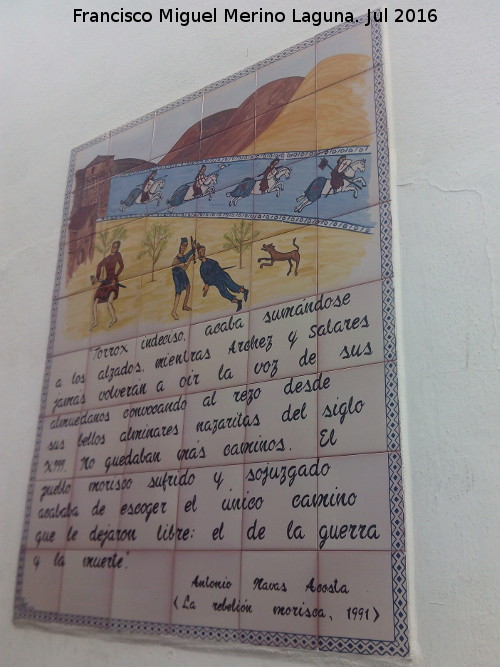 Francisco Miguel Merino Laguna. Jul 2016
Torrox indeciso, acaba sumándose
a los alzados, mientras Archez y Salares
jamás volverán a oir la voz de sus
almuedanos convocando al rezo desde
sus bellos alminares nazaritas del siglo
XIII. No quedaban más caminos. El
pueblo morisco sufrido y sojuzgado
acababa de escoger el único camino
que le dejaron libre: el de la guerra
y la muerte".
Antonio Navas Acosta
(La rebelión morisca, 1991)